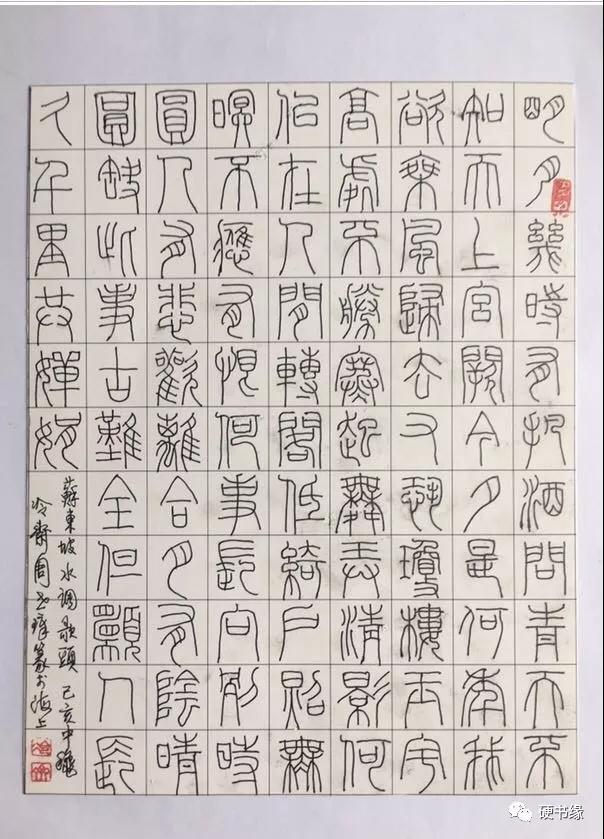 明月幾時有把酒問青天不
知天上宮闕今夕是何年我
欲乘風歸去又恐瓊樓玉宇
高處不勝寒起舞弄清影何
似在人間轉閣低綺戶照無
眠不應有恨何事長向別時
圓人有悲歡離合月有陰晴
圓缺此事古難全但願人長
久千里共嬋娟
蘇東坡水调歌頭 己亥中秋
冷齋周篆於海上
硬书缘